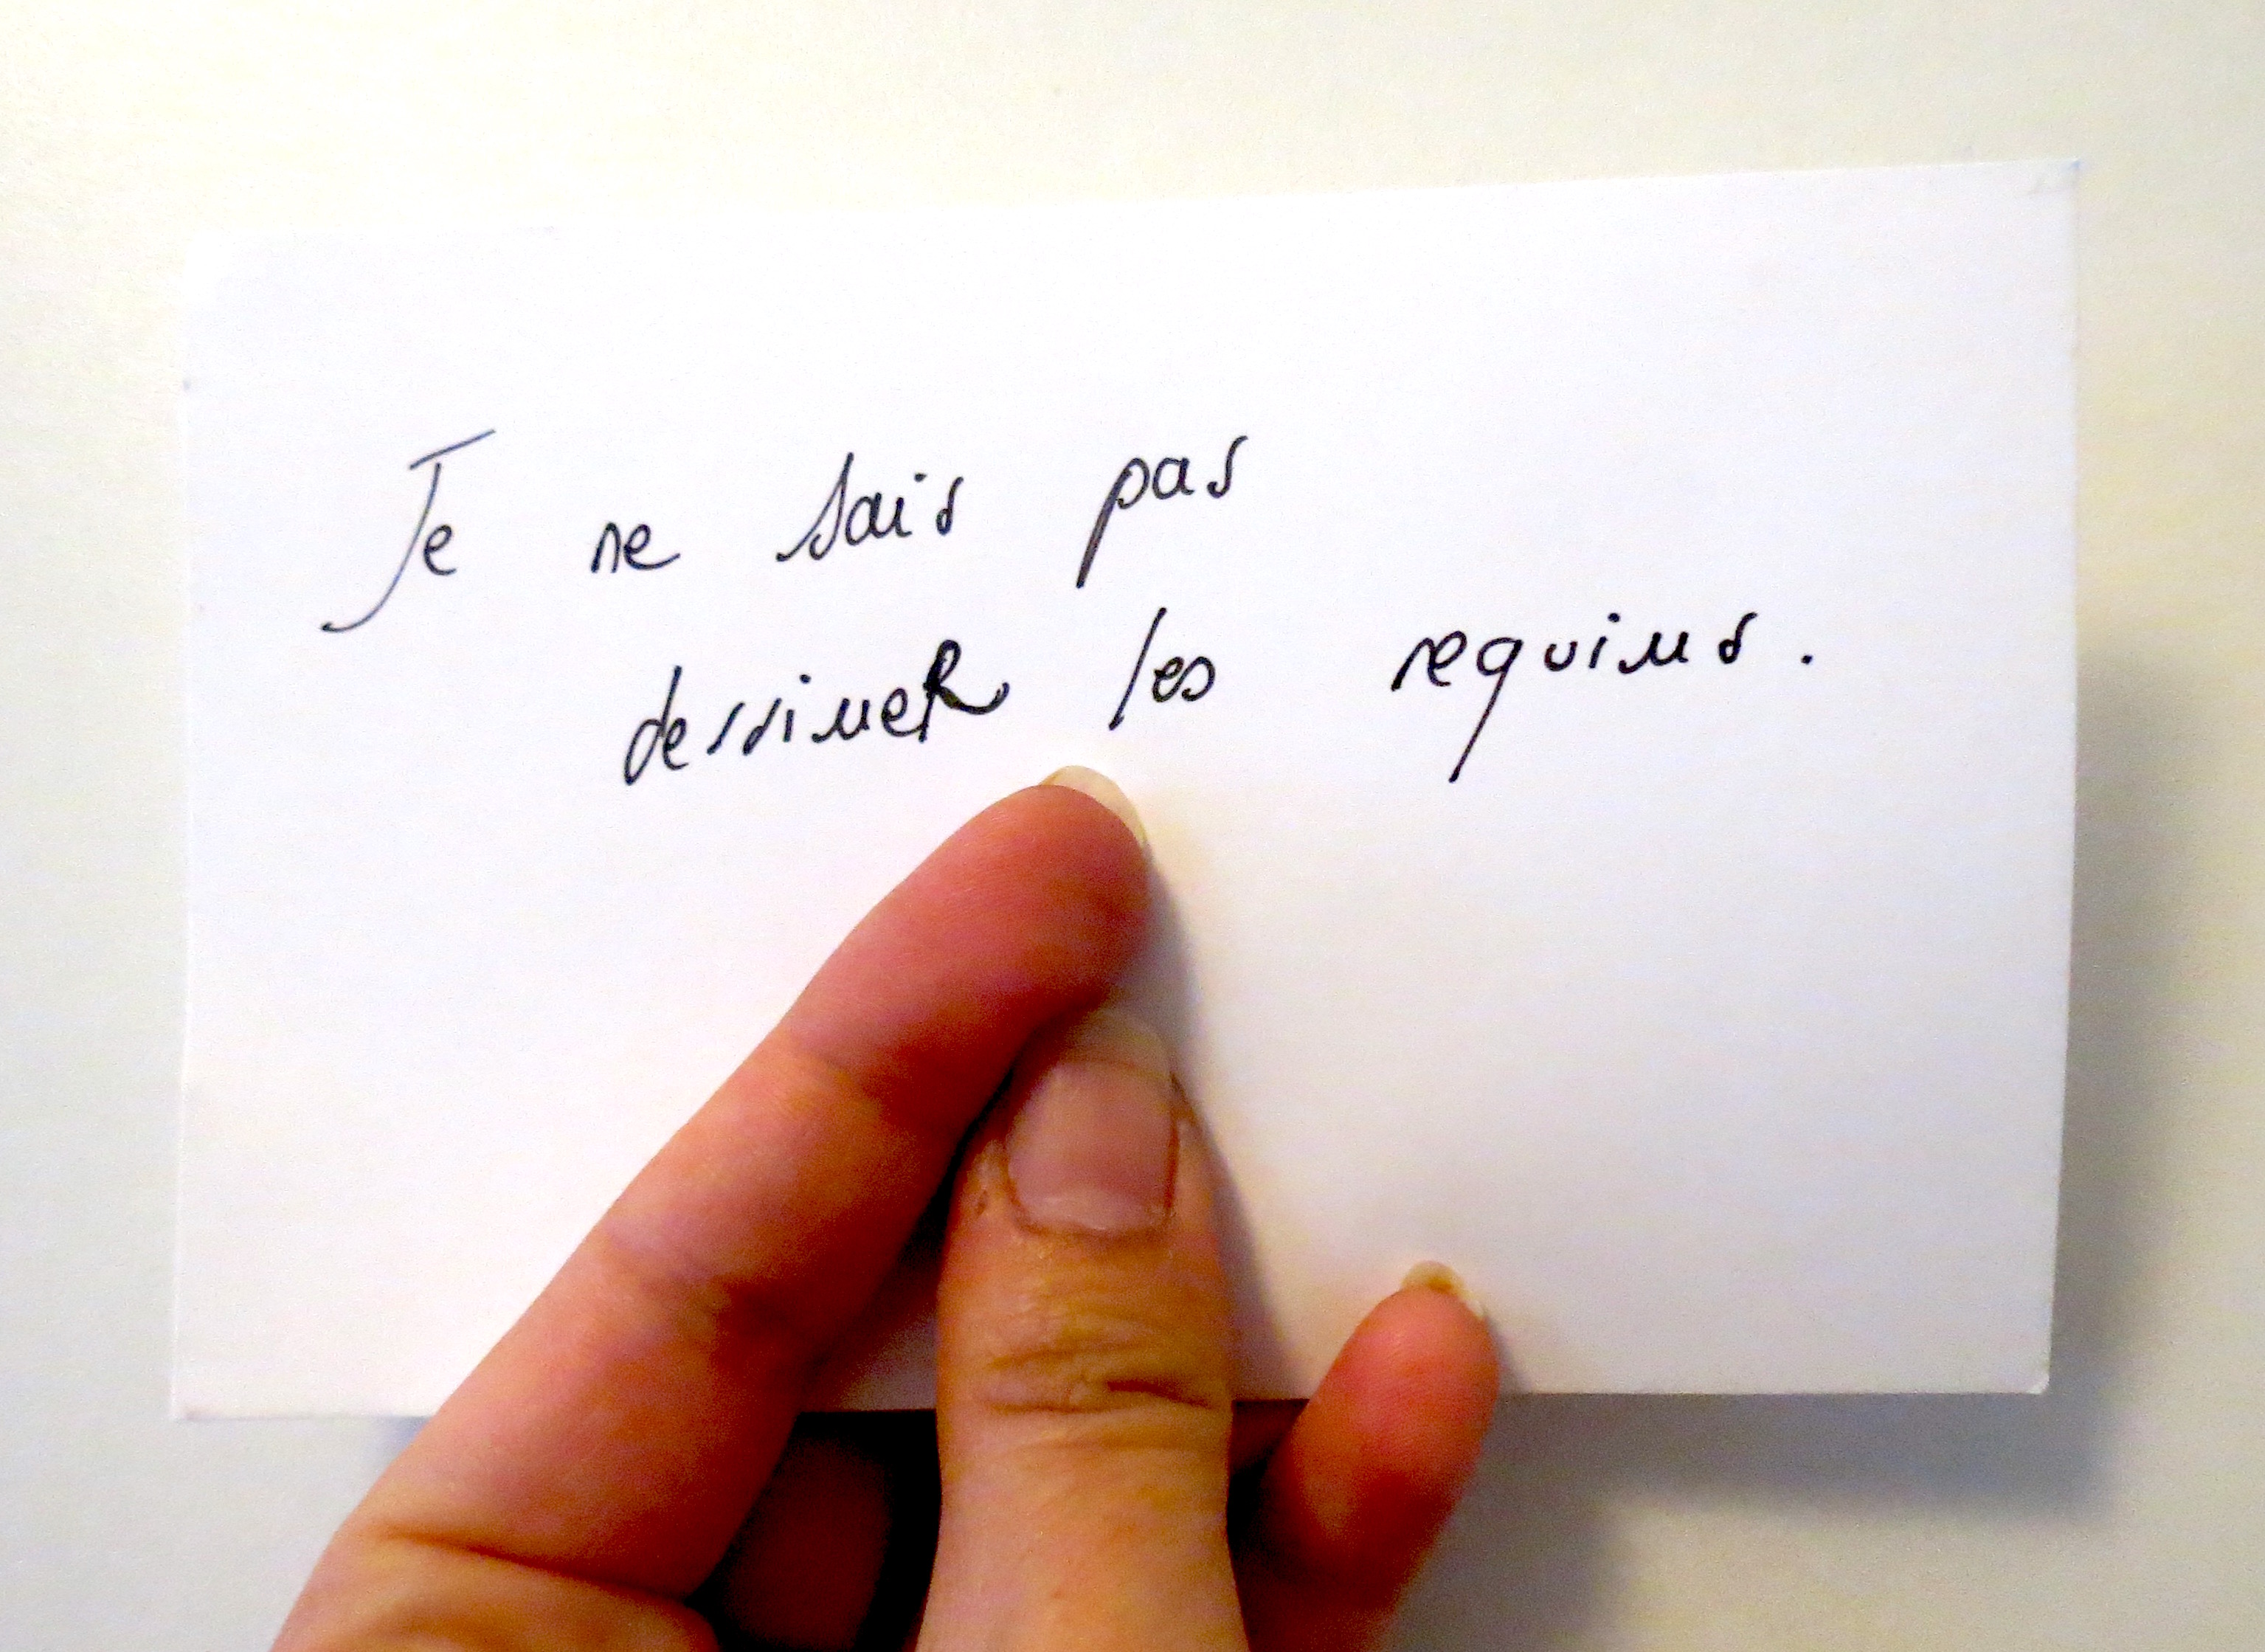 Je ne sais pas
dessineR les requins.